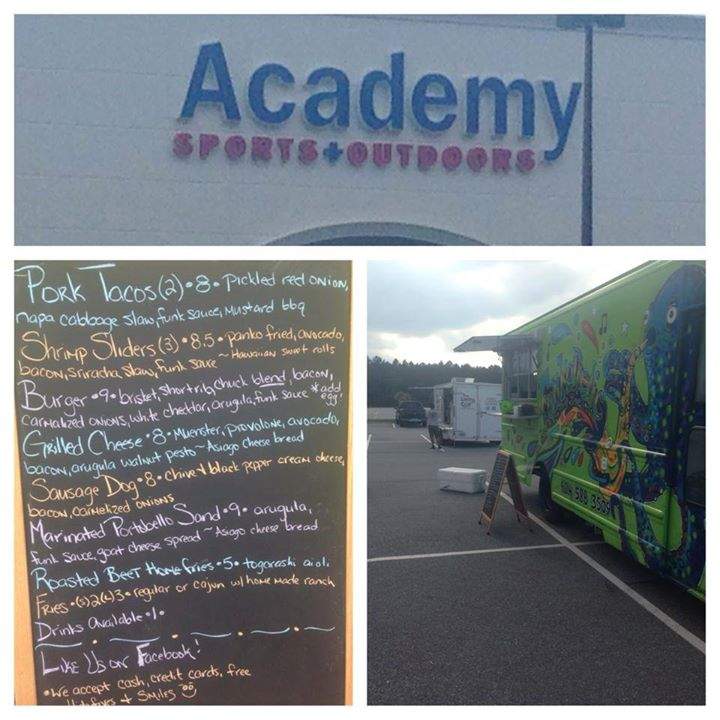 Academy
SPORTS+OUTDOORS
Pork Tacos (2) • 8 • Pickled red onion,
napa cabbage slaw, funk sauce, Mustard bbq
Shrimp Sliders (3) • 8.5 • panko fried, avocado,
bacon, Sriracha, Slaw, Funk Sauce ~ Hawaiian Sweet rolls
Burger • 9 • brisket, Short rib, chuck blend, bacon,
Carmalized onions, white cheddar, arugula, funk sauce *add egg!
Grilled Cheese • 8 • Muenster, provolone, avocado,
bacon, arugula walnut pesto ~ Asiago cheese bread
Sausage Dog • 8 • chive + black pepper cream cheese,
bacon, carmelized onions
Marinated Portobello Sand • 9 • arugula,
funk sauce, goat cheese spread ~ Asiago cheese bread
Roasted Beet Home fries • 5 • togarashi aioli
Fries • (s) 2 (L) 3 • regular or cajun w/ home made ranch
Drinks Available • 1 •
Like Us on Facebook!
• We accept cash, credit cards, free
+ Smiles